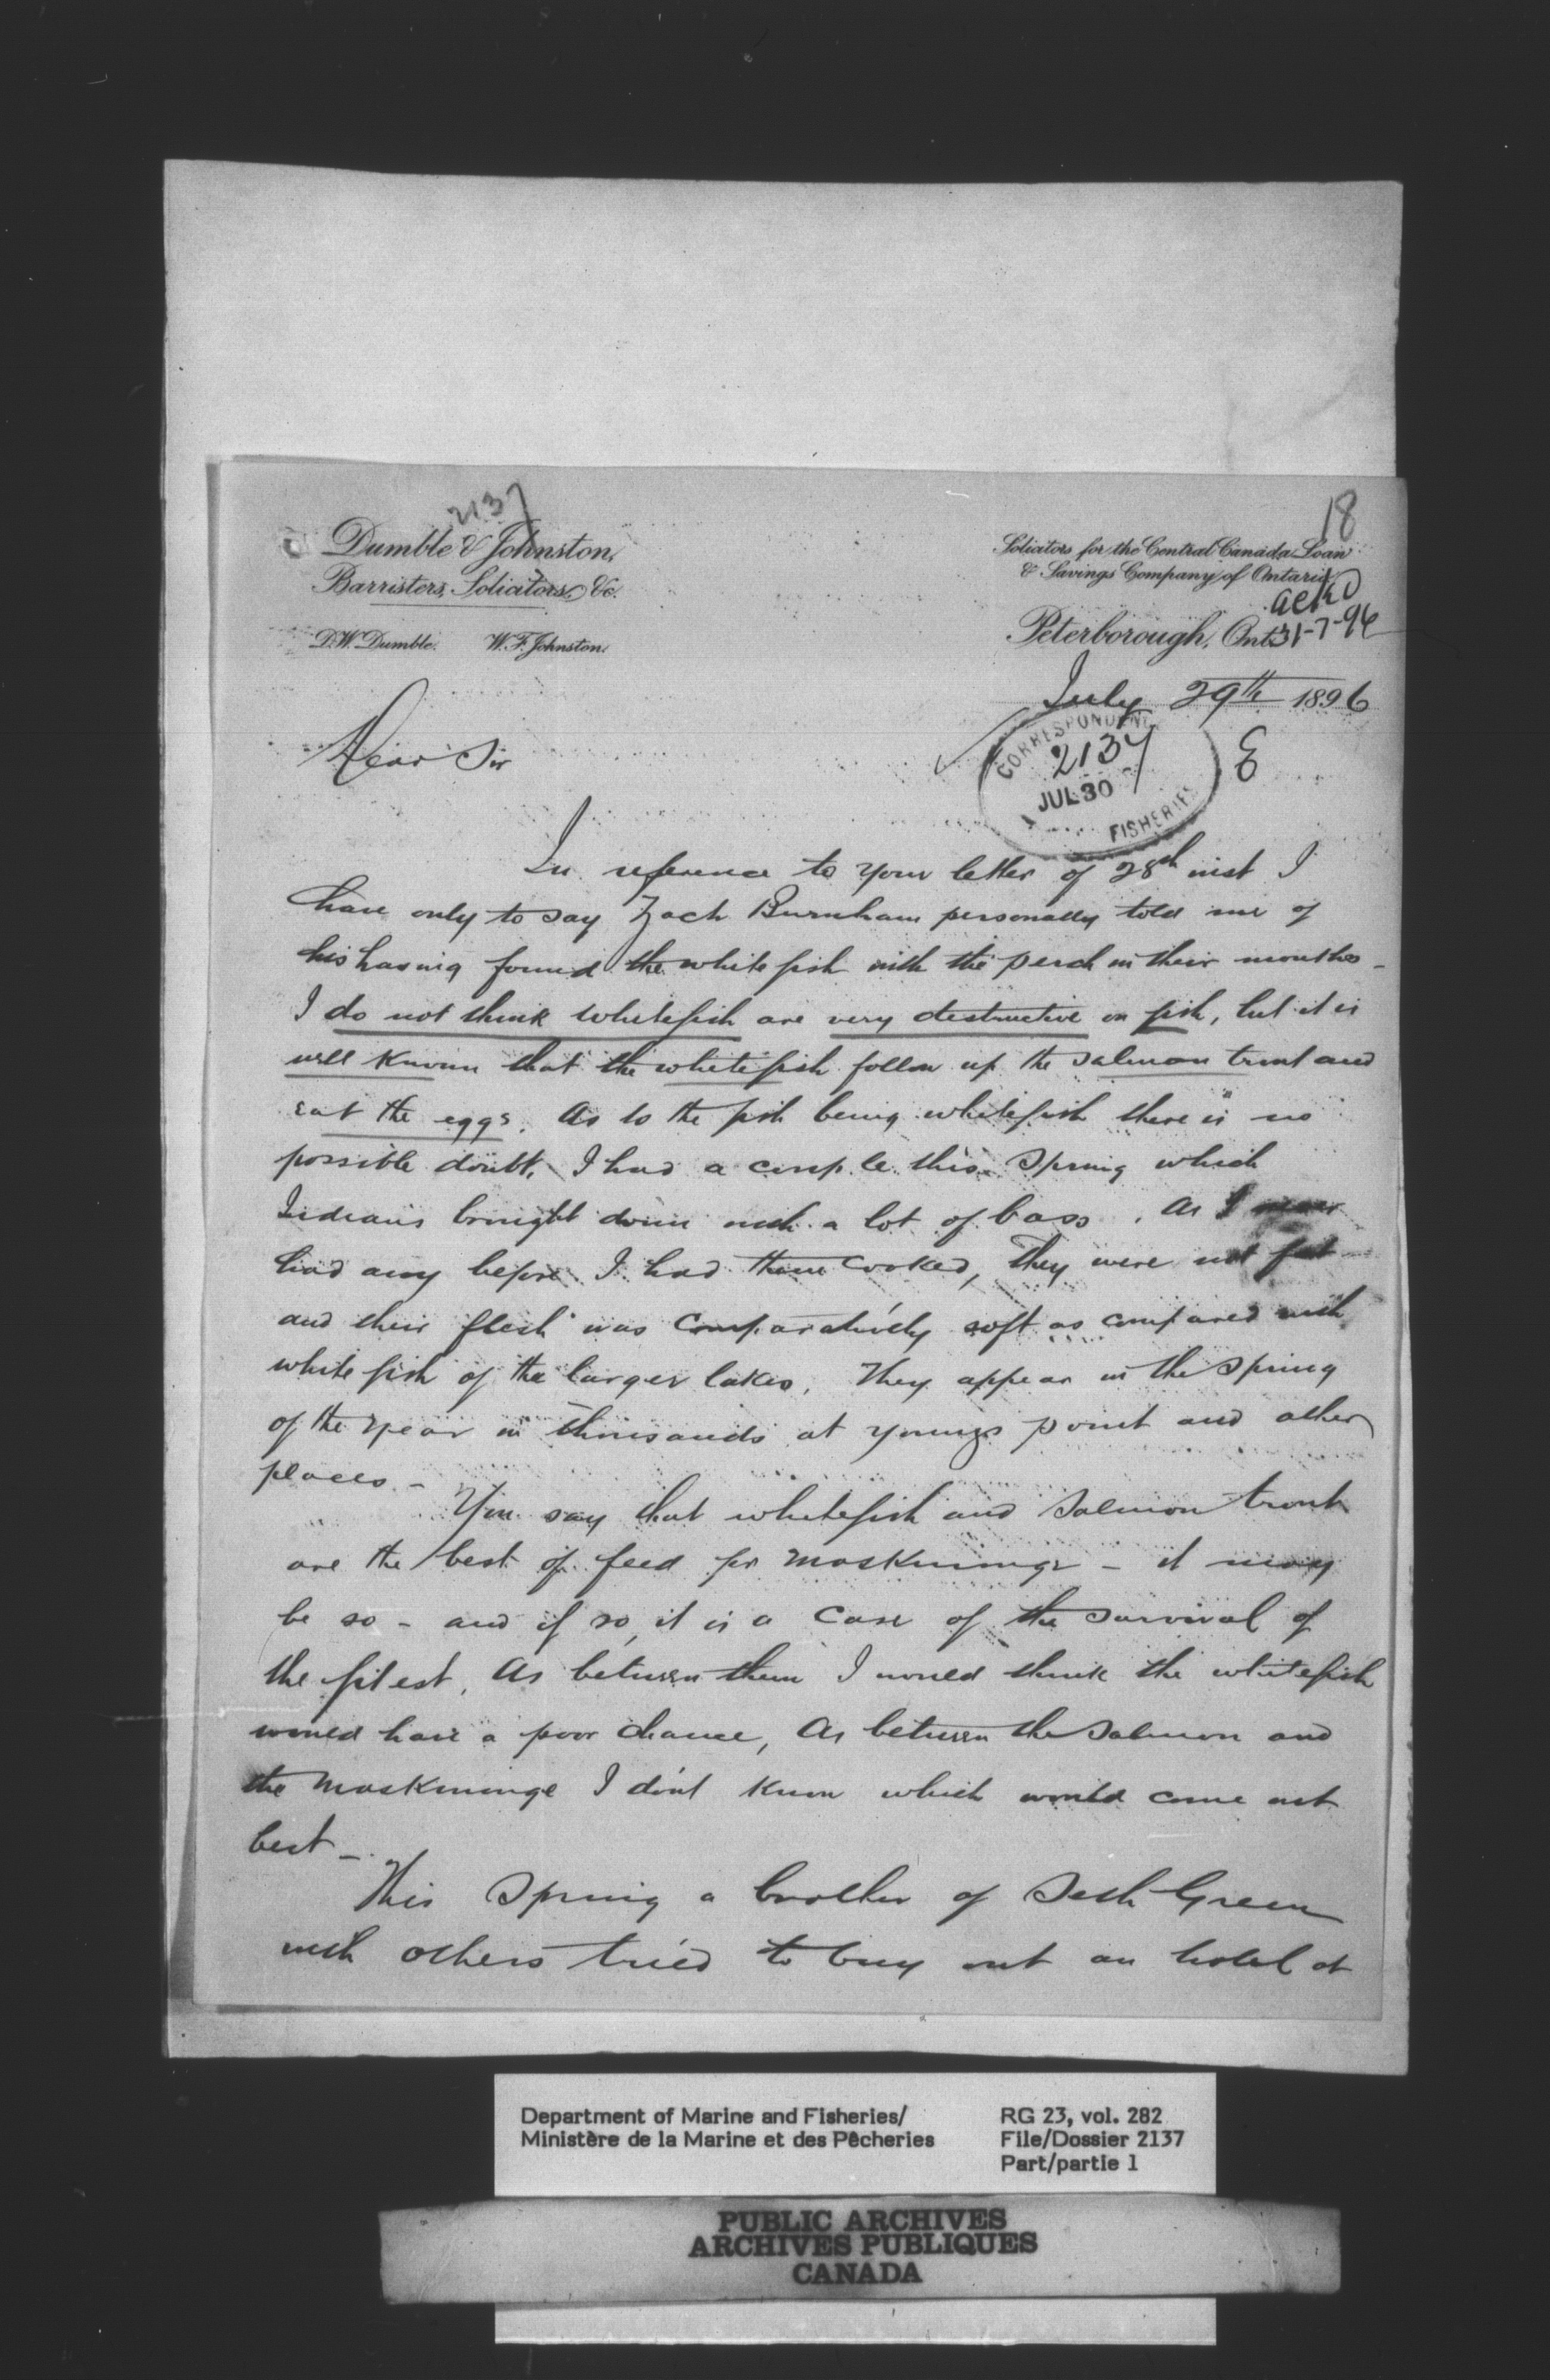 2137
18
Dumble & Johnston,
Barristers, Solicitors, &c.
D.W. Dumble. W.F. Johnston.
Solicitors for the Central Canada Loan
& Savings Company of Ontario
ackd
Peterborough, Ont. 31-7-96
July 29th 1896
CORRESPONDENCE
2137
JUL 30
FISHERIES
E
Dear Sir
In reference to your letter of 28th inst I
have only to say Zach Burnham personally told me of
his having found the whitefish with the perch in their mouths -
I do not think whitefish are very destructive on fish, but it is
well known that the whitefish follow up the salmon trout and
eat the eggs. As to the fish being whitefish there is no
possible doubt. I had a couple this Spring which
Indians brought down with a lot of bass. As I never
had any before I had them cooked, They were not fat
and their flesh was comparatively soft as compared with
white fish of the larger lakes. They appear in the Spring
of the year in thousands at Youngs point and other
places -
You say that whitefish and Salmon trout
are the best of feed for maskinonge - it may
be so - and if so, it is a case of the survival of
the fitest. As between them I would think the whitefish
would have a poor chance, As between the Salmon and
the maskinonge I don't know which would come out
best -
This Spring a brother of Seth Green
with others tried to buy out an hotel at
Department of Marine and Fisheries/
Ministère de la Marine et des Pêcheries
RG 23, vol. 282
File/Dossier 2137
Part/partie 1
PUBLIC ARCHIVES
ARCHIVES PUBLIQUES
CANADA